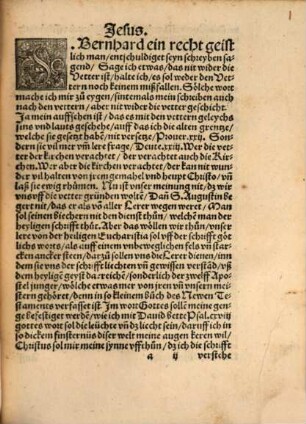 Jesus.
S. Bernhard ein recht geist
lich man/entschuldiget seyn schreyben sa
gend/ Sage ich etwas/das nit wider die
Vetter ist/halte ich/es sol weder den Vet=
tern noch keinem mißfallen. Sölche wort
mache ich mir zů eygen/sintemals mein schreiben auch
nach den vettern/aber nit wider die vetter geschicht.
Ja mein auffsehen ist/das es mit den vettern geleychs
sins vnd lauts geschehe/auff das ich die alten grentze/
welche sie gesetzt habē/nit versetze/Prouer.xxij. Son=
dern sie vil mer vm lere frage/Deute.xxxij. Wer die vet=
ter der kirchen verachtet/der verachtet auch die Kir=
chen. Wer aber die kirchen verachtet/der kan nit wun=
der vil halten von irem gemahel vnd heupt Christo/vň
laß sie ewig rhůmen. Nu ist vnser meinung nit/dz wir
vns vff die vetter gründen wolte/ Dañ S. Augustin be
gert nit/das er als vō aller Lerer wegen wert/ Man
sol seinen büechern nit den dienst thůn/welchē man der
heyligen schrifft thůt. Aber das wöllen wir thůn/vnse=
re lere von der heiligen Eucharistia sol vff der schrifft göt
lichs worts/als auff einem vnbeweglichen fels vň star=
cken ancker steen/darzů sollen vns die Lerer dienen/inn
dem sie vns der schrifftlichen vň gewissen verstād/vß
dem heyligē geyst da reichē/sonderlich der zwelff Apo=
stel junger/wölche etwas mer von jren vň vnsern mei=
stern gehöret/denn in so kleinem bůch des Newen Te=
stamentes verfasset ist. Im wort Gottes solle meine gen=
ge befestiget werdē/wie ich mit Dauid bette Psal.cxviij
gottes wort sol die leüchte vň dz liecht sein/daruff ich in
so dickem finsternüs diser welt meine augen keren wil/
Christus sol mir meine synne vffthůn/dz ich die schrifft
a ij verstehe